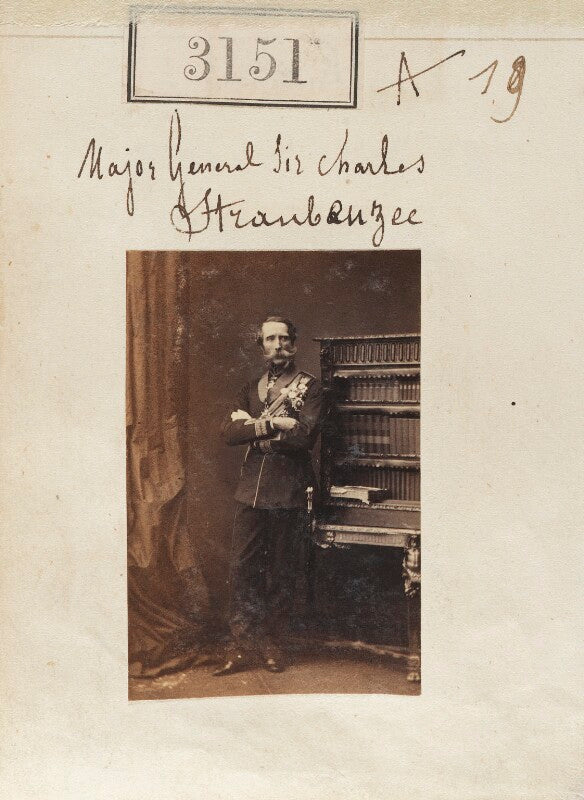 3151
A 19
Major General Sir Charles
Straubenzee